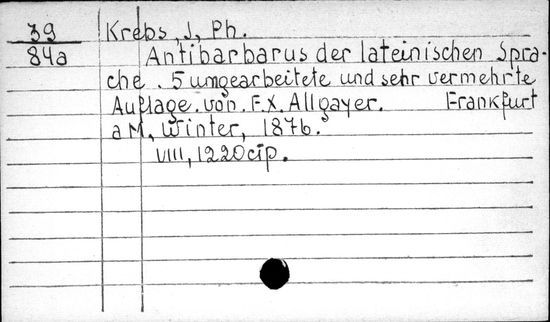 39 Krebs, J, Ph.
84a Antibarbarus der lateinischen Spra-
che. 5 umgearbeitete und sehr vermehrte
Auflage. von. F.X. Allgayer. Frankfurt
a M, Winter, 1876.
VIII, 1220 cip.